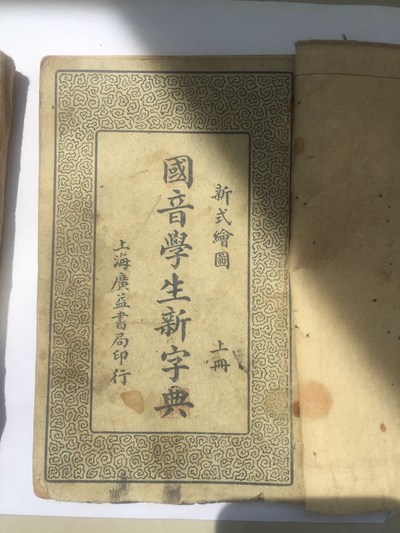 新式繪圖
上冊
國音學生新字典
上海廣益書局印行